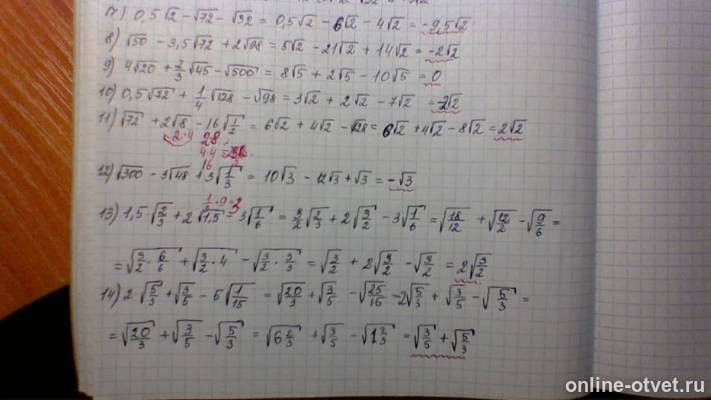 7) 0,5√2 - √72 - √32 = 0,5√2 - 6√2 - 4√2 = -9,5√2
8) √50 - 3,5√72 + 2√98 = 5√2 - 21√2 + 14√2 = -2√2
9) 4√20 + 2/3√45 - √500 = 8√5 + 2√5 - 10√5 = 0
10) 0,5√72 + 1/4√128 - √98 = 3√2 + 2√2 - 7√2 = -2√2
11) √72 + 2√8 - 16√1/2 = 6√2 + 4√2 - √128 = 6√2 + 4√2 - 8√2 = 2√2
2·4
16
12) √300 - 3√48 + 3√1/3 = 10√3 - 12√3 + √3 = -√3
1/3·9=3
13) 1,5·√2/3 + 2√1,5 - 3√1/6 = 3/2√2/3 + 2√3/2 - 3√1/6 = √18/12 + √12/2 - √9/6 =
= √3/2·6/6 + √3/2·4 - √3/2·3/3 = √3/2 + 2√3/2 - √3/2 = 2√3/2
14) 2·√5/3 + √3/5 - 5√1/15 = √20/3 + √3/5 - √25/15 = 2√5/3 + √3/5 - √5/3 =
= √20/3 + √3/5 - √5/3 = √6 2/3 + √3/5 - √1 2/3 = √3/5 + √5/3
online-otvet.ru